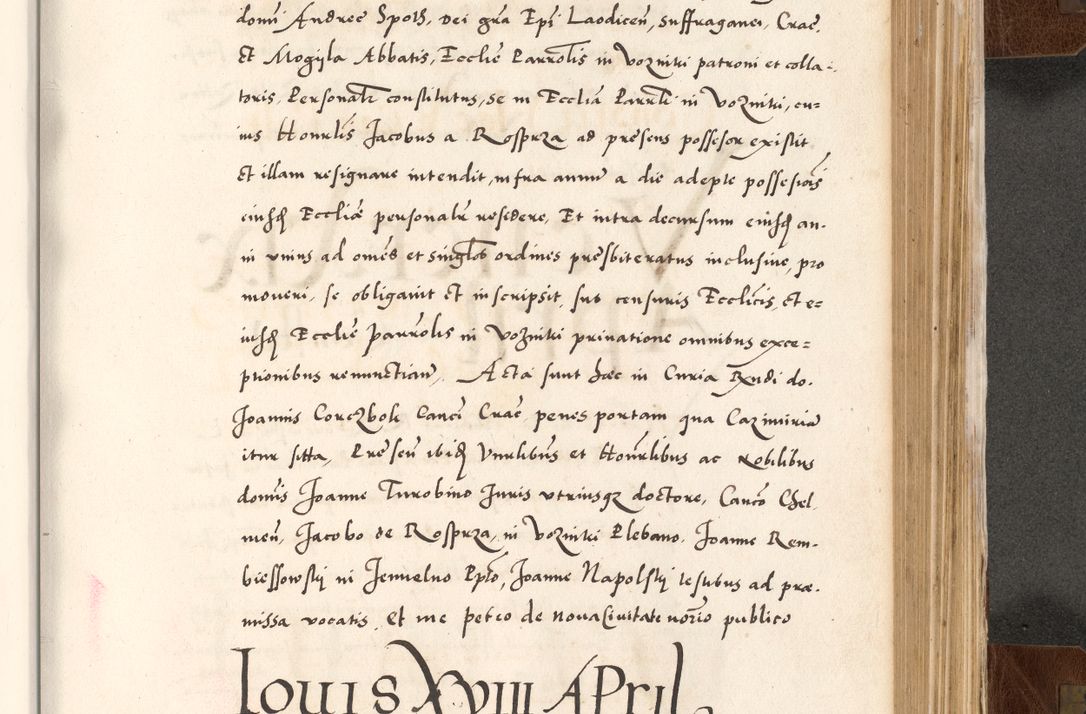 domi Andreę Spotħ, Dei grã Epĩ Laodiceñ, suffraganei, Cracˊ,
et Mogyla Abbatis, Eccliẽ Parrõlis in Vozniki patroni et colla=
toris, Personalr̃ constitutus, se in Ecclĩa Parrli in Vozniki, cu=
ius Honrlĩs Jacobus a Rospxza ad pręsens possesor existit
et illam resignare intendit, infra annũ a die adeptę possesiõis
eiusdẽ Eccliæ personalr̃ residere, Et intra decursum eiusdẽ an-
ni unius ad omẽs et singlos̃ ordines pręsbiteratus inclusiue, pro
moueri, se obligauit et inscripsit, sub censuris Ecclicĩs, et e=
iusdẽ Eccliẽ parrõlis in Vozniki priuatione omnibus exce=
ptionibus renunctianĩ. Acta sunt hæc in Curia Rx̃ndi do.
Joannis Corczbok Cancĩ Cracˊ penes portam qua Cazimiriã
itur sitta, Pręseñ ibidẽ Vnrlibũs et Honr̃libus ac Nobilibus
domĩs Joanne Turobino Juris vtriusqȝ doctore, Cancõ Chel
meñ, Jacobo de Rospxza, in Vozniki Plebano, Joanne Rem-
biessowskj in Jemielno Ppto͂, Joanne Napolskj testibus ad præ-
missa vocatis. Et me petro de nouaciuitate norĩo publico
Jouis XVIII APril